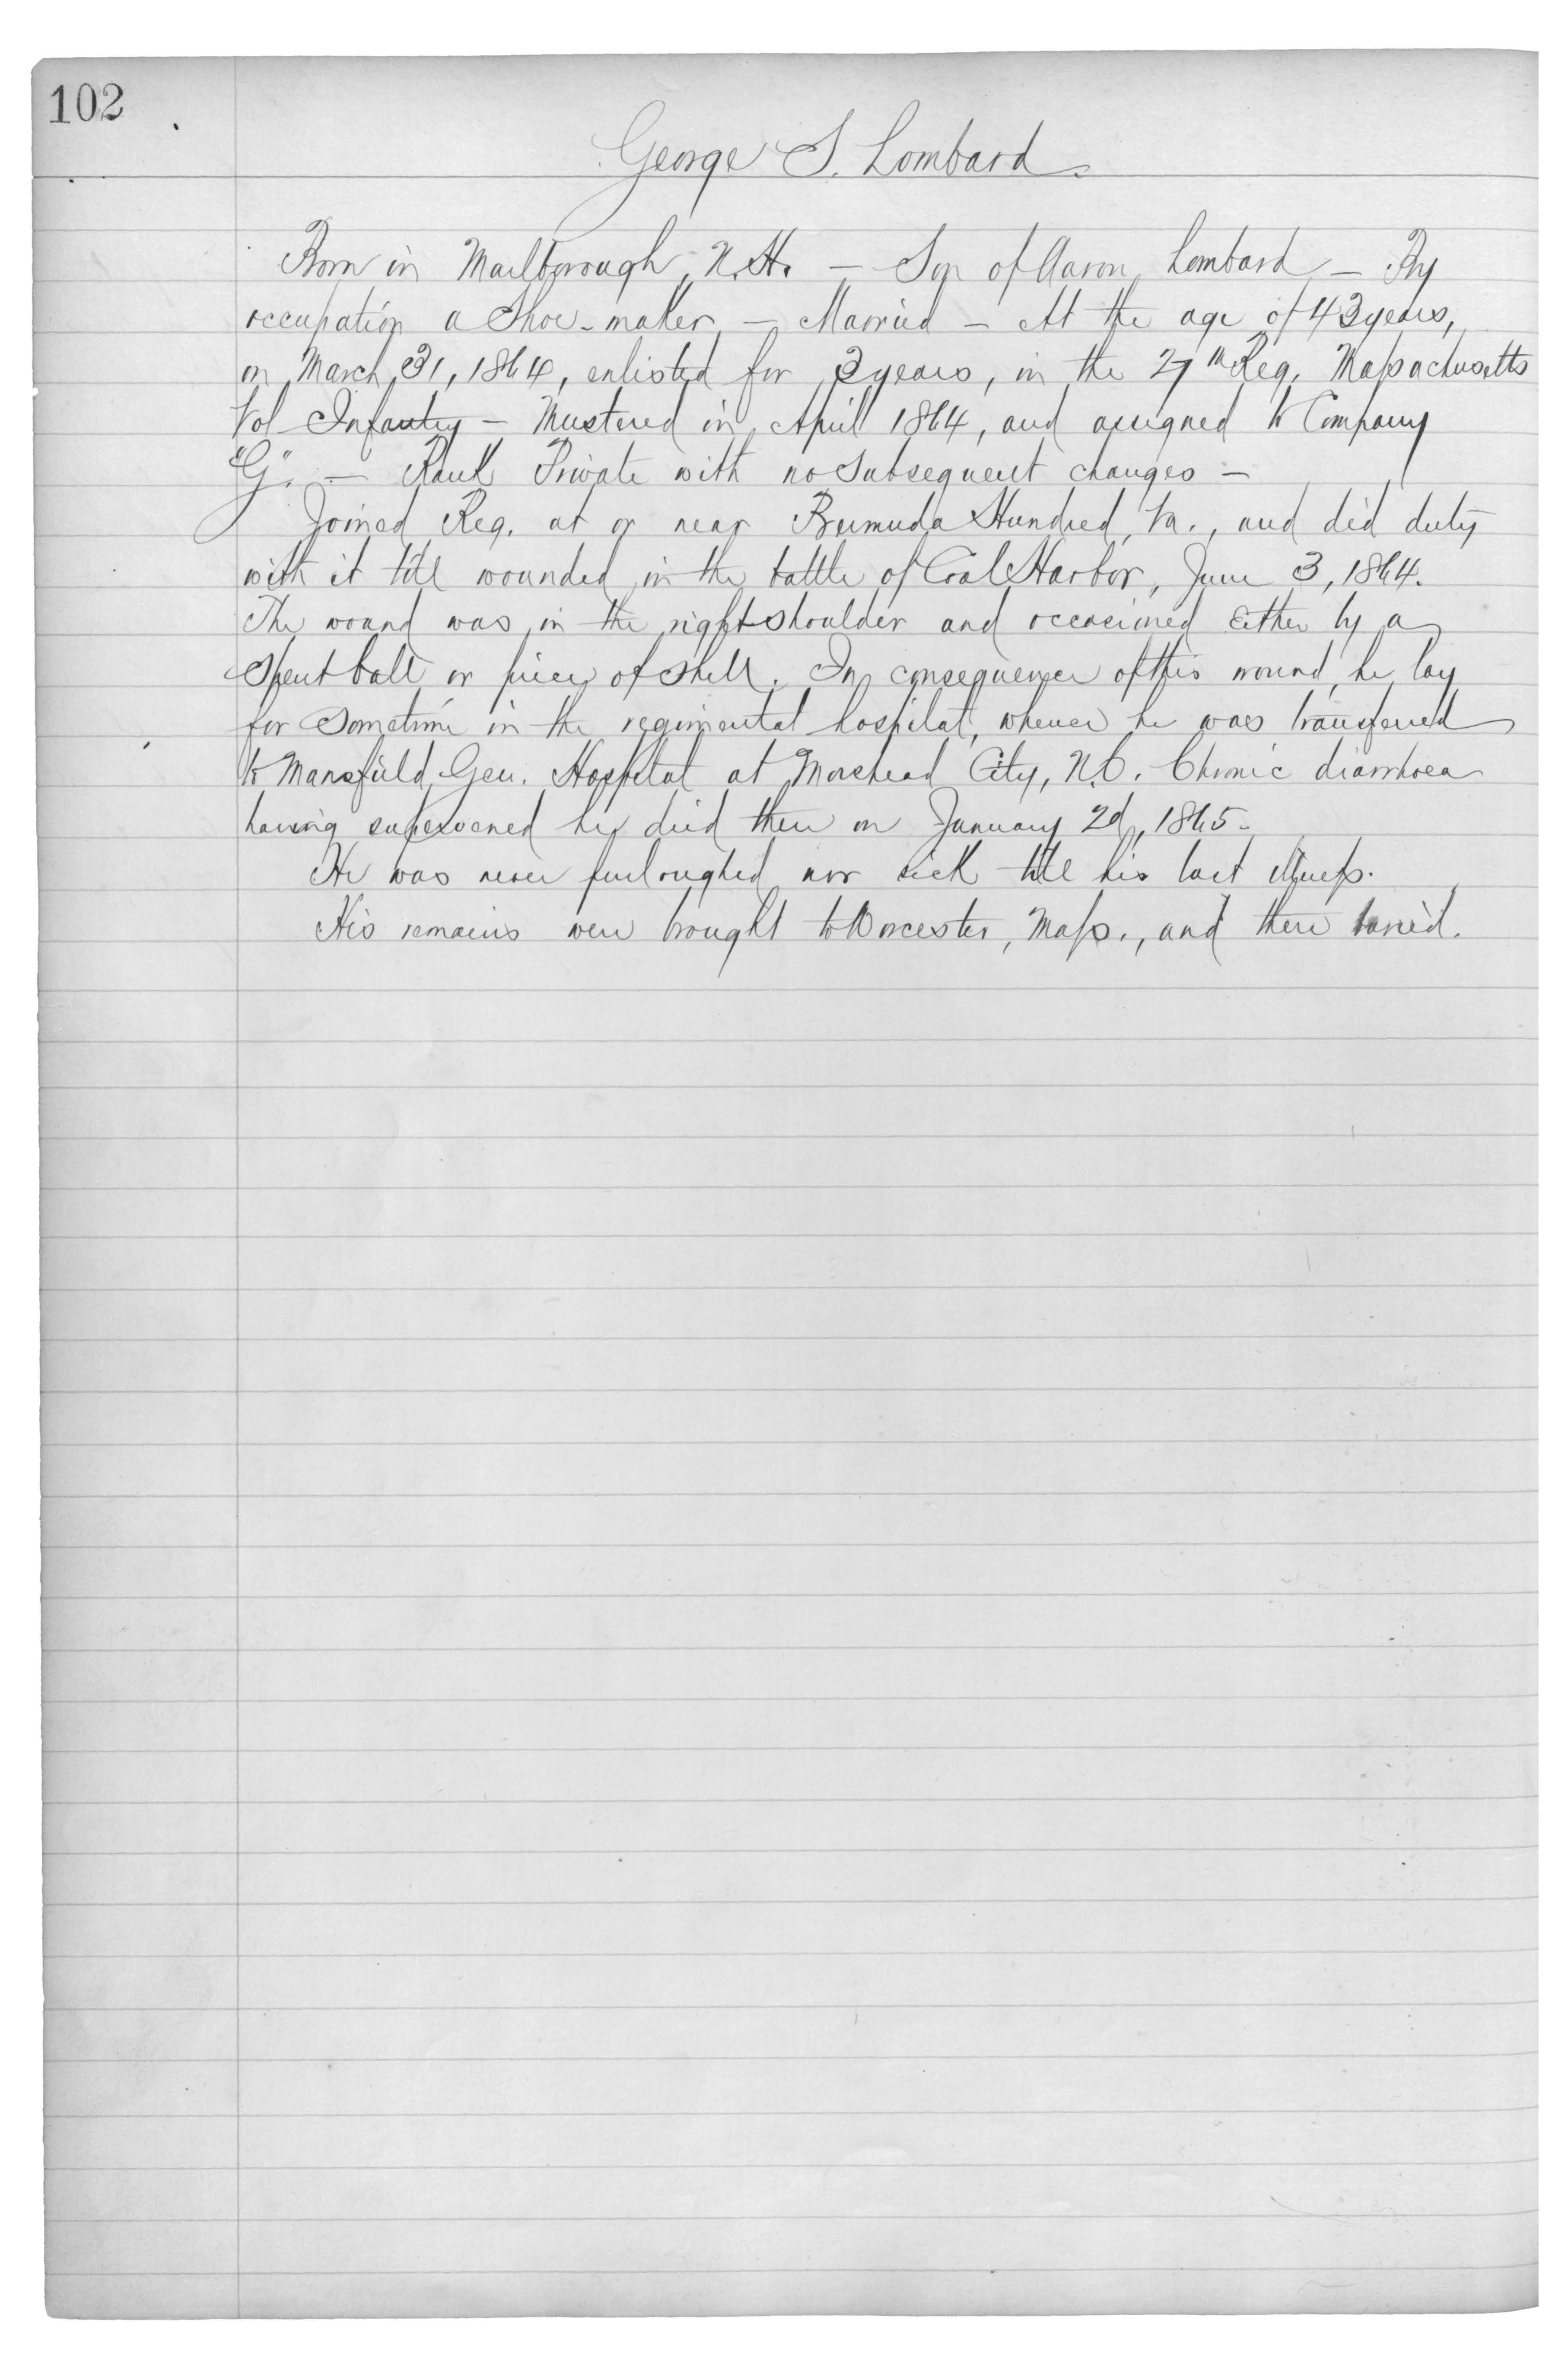 102
George S. Lombard.
Born in Marlborough, N.H. — Son of Aaron Lombard — By
occupation a Shoe-maker — Married — At the age of 43 years,
on March 31, 1864, enlisted for 3 years, in the 27th Reg. Massachusetts
Vol Infantry — Mustered in April 1864, and assigned to Company
"G". — Rank Private with no subsequent changes —
Joined Reg. at or near Bermuda Hundred, Va., and did duty
with it till wounded in the battle of Coal Harbor, June 3, 1864.
The wound was in the right shoulder and occasioned either by a
spent ball or piece of shell. In consequence of this wound, he lay
for sometime in the regimental hospital, whence he was transferred
to Mansfield Gen. Hospital at Morehead City, N.C. Chronic diarrhoea
having supervened he died there on January 2d, 1865.
He was never furloughed nor sick till his last illness.
His remains were brought to Worcester, Mass., and there buried.